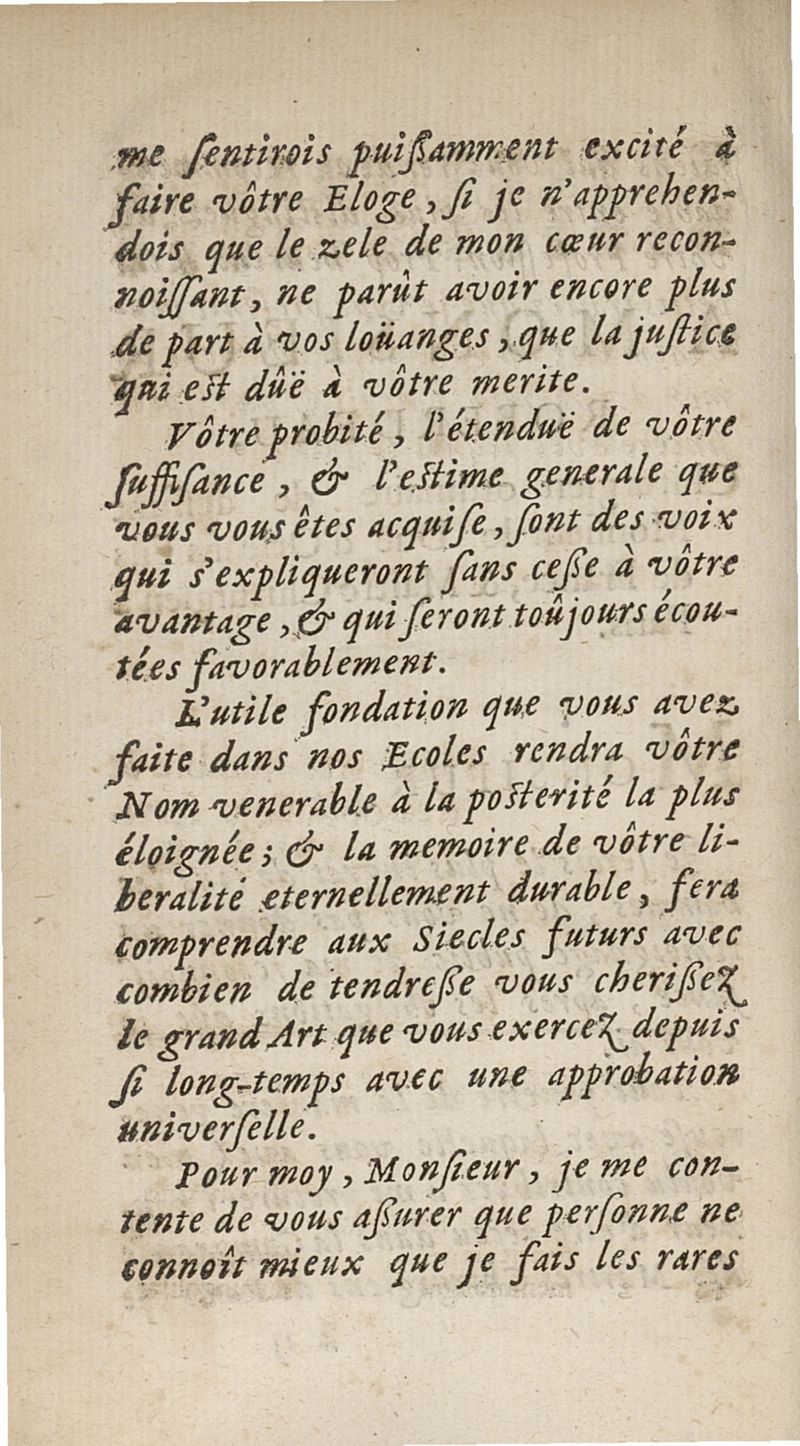 me ſentirois puiſſamment excité à
faire vôtre Eloge, ſi je n'apprehen-
dois que le zele de mon cœur recon-
noiſſant, ne parût avoir encore plus
de part à vos loüanges, que la juſtice
qui est dûë à vôtre merite.
Vôtre probité, l'étenduë de vôtre
ſuffiſance, & l'estime generale que
vous vous êtes acquiſe, ſont des voix
qui s'expliqueront ſans ceſſe à vôtre
avantage, & qui ſeront toûjours écou-
tées favorablement.
L'utile fondation que vous avez
faite dans nos Ecoles rendra vôtre
Nom venerable à la posterité la plus
éloignée; & la memoire de vôtre li-
beralité eternellement durable, fera
comprendre aux Siecles futurs avec
combien de tendreſſe vous cheriſſez
le grand Art que vous exercez depuis
ſi long-temps avec une approbation
univerſelle.
Pour moy, Monſieur, je me con-
tente de vous aſſurer que perſonne ne
connoît mieux que je fais les rares